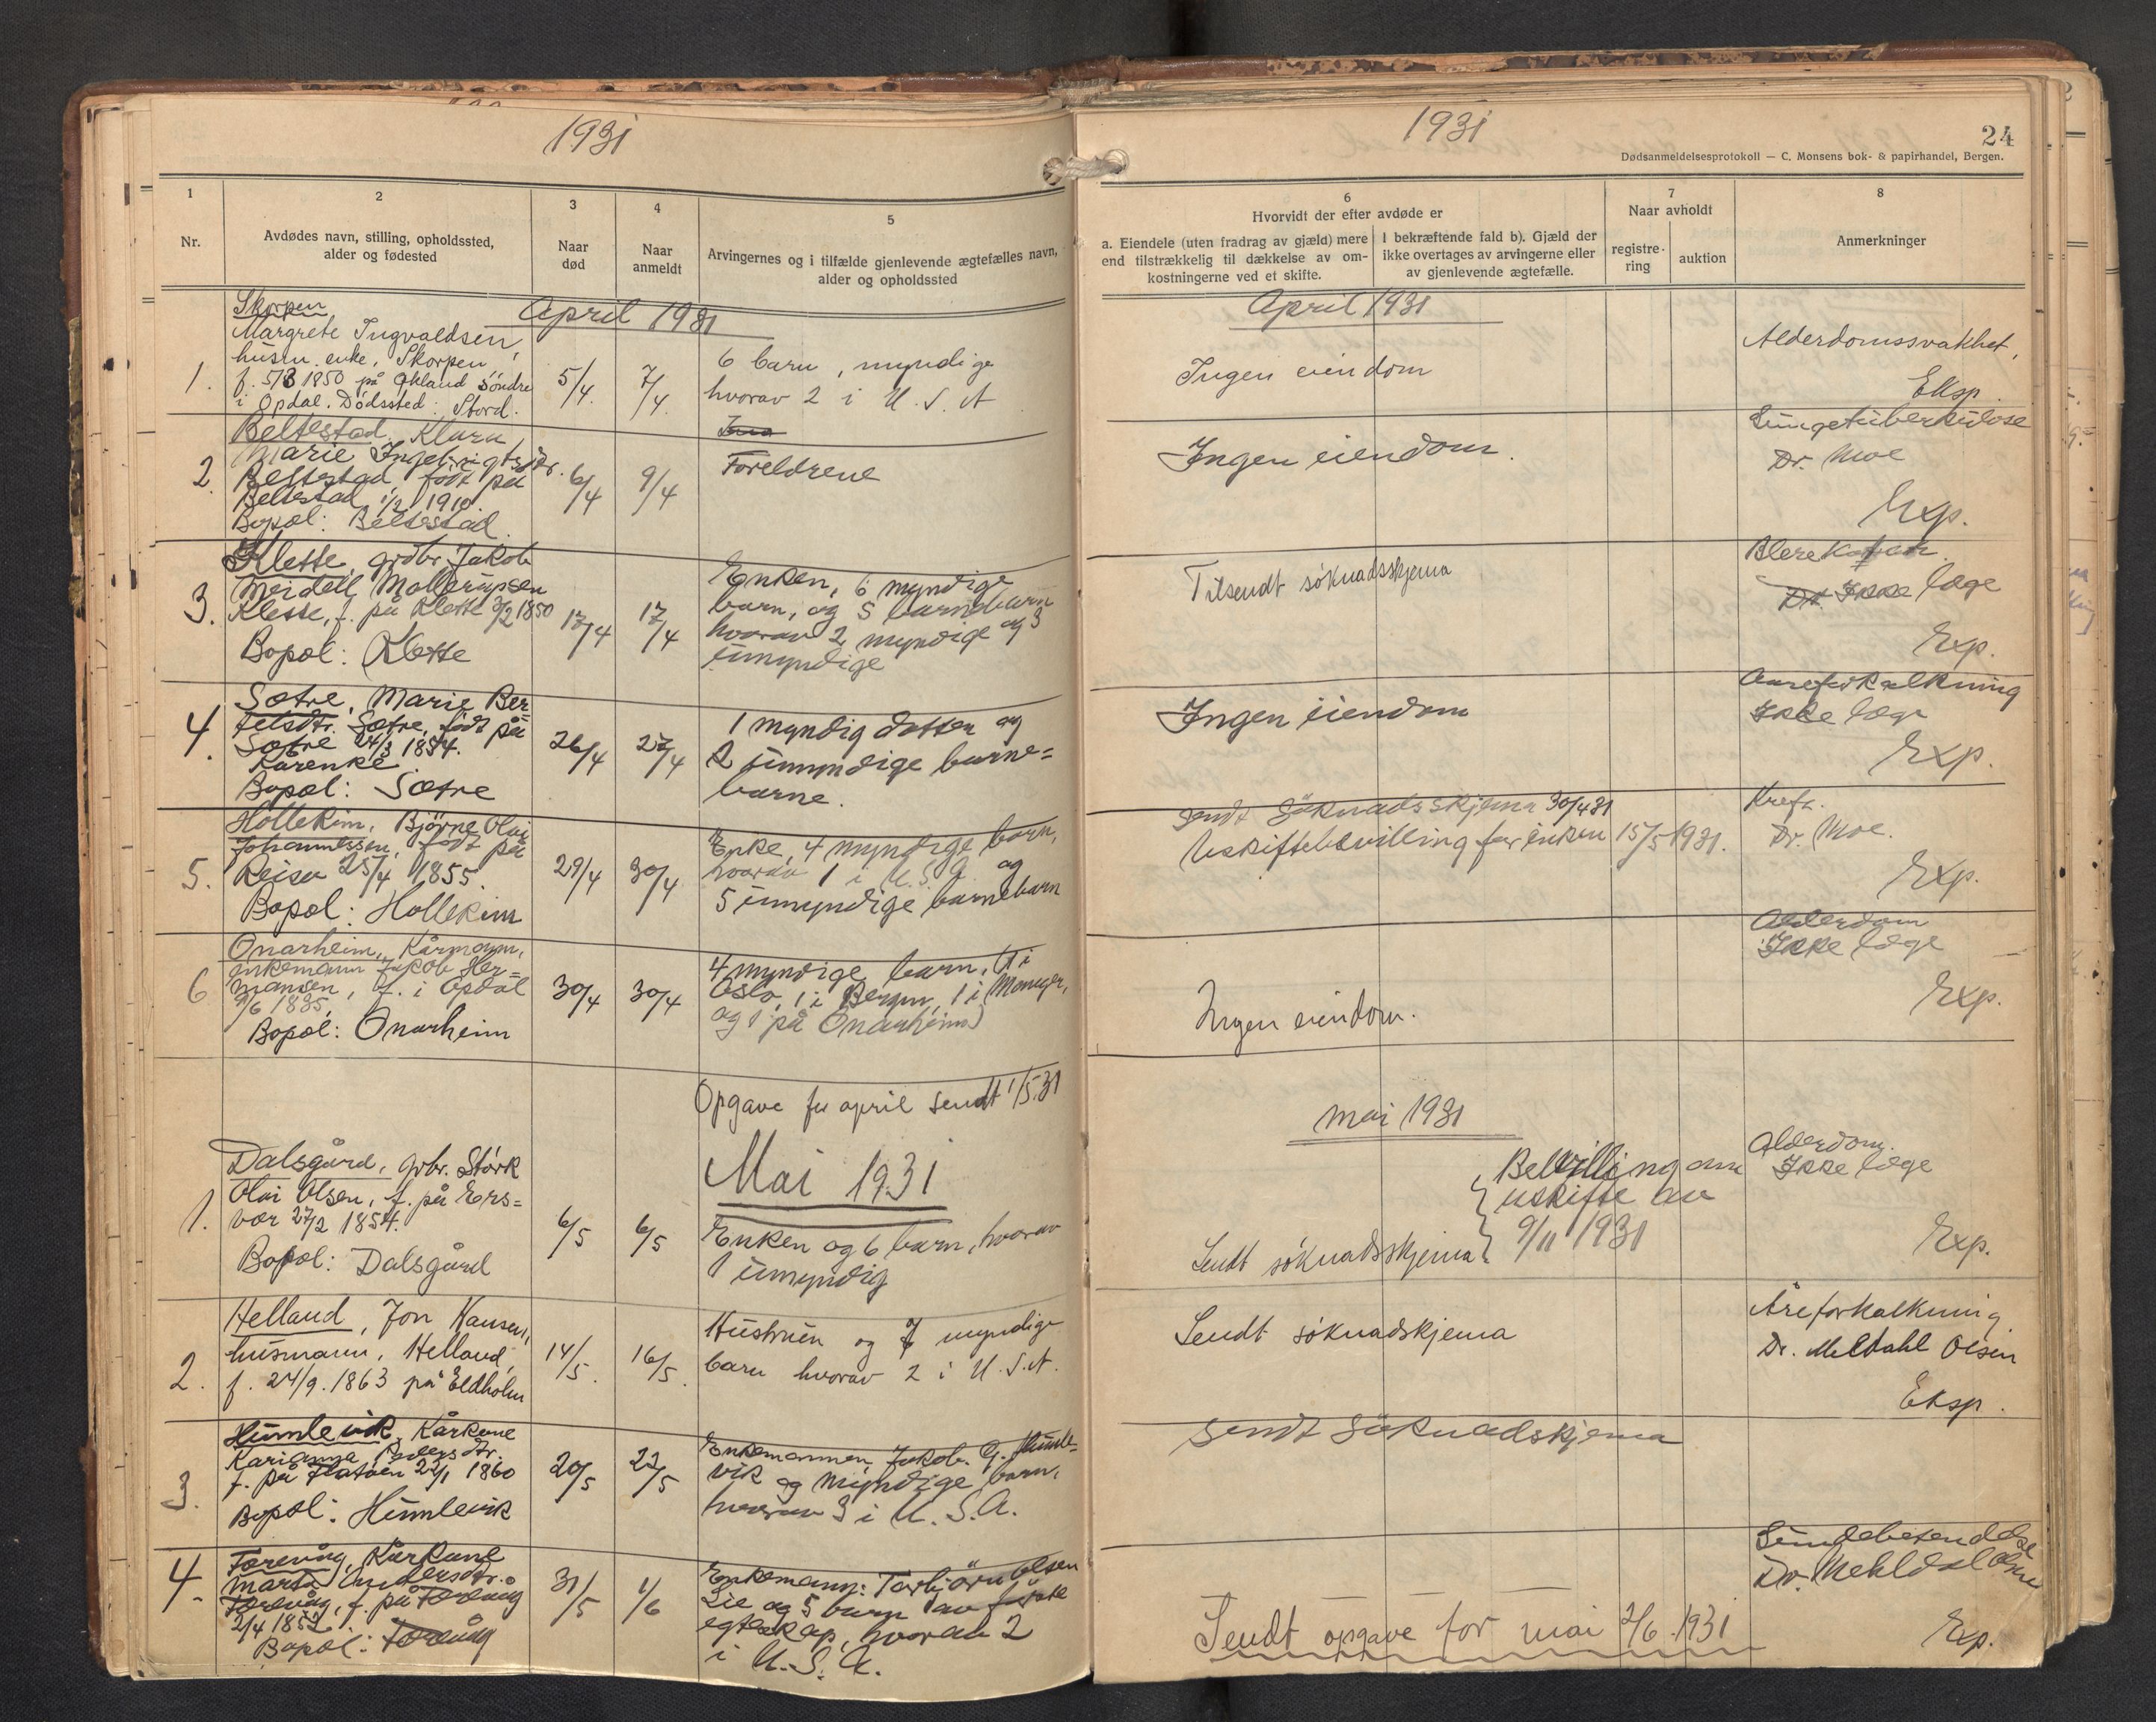 1931
1
2
3
4
5
Nr.
Avdødes navn, stilling, opholdssted,
alder og fødested
Naar
død
Naar
anmeldt
Arvingernes og i tilfælde gjenlevende ægtefælles navn,
alder og opholdssted
April 1931
1.
Skorpen
Margrete Ingvaldsen,
husm. enke, Skorpen
f. 5/3 1850 på Økland Søndre
i Opdal. Dödssted: Stord.
5/4.
7/4.
6 barn, myndige
hvorav 2 i U.S.A
2.
Beltestad, Klara
Marie Ingebrigtsdtr.
Beltestad, född på
Beltestad 1/2 1910.
Bopæl: Beltestad.
6/4
9/4
Foreldrene
3.
Klette, grdbr. Jakob
Meidell Mallerupsen
Klette, f. på Klette 3/2 1850
Bopæl: Klette
17/4
17/4
Enken, 6 myndige
barn, og 5 barnebarn
hvorav 2 myndige og 3
umyndige
4.
Sætre, Marie Ber
telsdtr. Sætre, födt på
Sætre 24/3 1854.
Kårenke
Bopæl: Sætre
26/4
27/4
1 myndig datter og
2 umyndige barne=
barne.
5.
Hollekim, Björne Olai
Johannessen, födt på
Reisa 25/4 1855.
Bopæl: Hollekim
29/4
30/4
Enke, 4 myndige barn,
hvorav 1 i U.S.A. og
5 umyndige barnebarn
6
Onarheim, Kårmann,
enkemann Jakob Her=
mansen, f. i Opdal
9/6 1835
Bopæl: Onarheim
30/4
30/4
4 myndige barn, (1 i
Oslo, 1 i Bergen, 1 i Manger,
og 1 på Onarheim)
Opgave for april sendt 1/5.31
Mai 1931
1.
Dalsgård, grbr. Störk
Olai Olsen, f. på Ers=
vær 27/2 1854.
Bopæl: Dalsgård
6/5
6/5
Enken og 6 barn, hvorav
1 umyndig
2.
Helland, Jon Hansen,
husmann, Helland,
f. 24/9. 1863 på Eldholm
14/5.
16/5.
Hustruen og 7 myndige
barn hvorav 2 i U.S.A.
3.
Humlevik, Kårkone
Karianna Anders dtr.
f. på Flatøen 22/1 1860
Bopæl: Humlevik
20/5
22/5
Enkemannen Jakob. G. Humle=
vik og myndige barn,
hvorav 3 i U.S.A.
4.
Toreväg, Kårkone
Marta Andersdtr.
Toreväg, f. på Toreväg
2/4 1852.
Bopæl: Toreväg
31/5
1/6
Enkemann: Torbjörn Olsen
Lie og 5 barn av förste
egteskap, hvorav 2
i U.S.A.
1931
24
Dødsanmeldelsesprotokoll — C. Monsens bok- & papirhandel, Bergen.
6
Hvorvidt der efter avdøde er
a. Eiendele (uten fradrag av gjæld) mere
end tilstrækkelig til dækkelse av om-
kostningerne ved et skifte.
I bekræftende fald b). Gjæld der
ikke overtages av arvingerne eller
av gjenlevende ægtefælle.
7
Naar avholdt
registre-
ring
auktion
8
Anmerkninger
April 1931
Ingen eiendom
Alderdomssvakhet,
Eksp.
Ingen eiendom.
Lungetuberkulose
Dr. Moe
Exp.
Tilsendt söknadsskjema
Blerekatar.
Ikke læge
Exp.
Ingen eiendom
Aareforkalkning
Ikke læge
Exp.
Sendt Söknadsskjema 30/4 31
Uskiftebevilling for enken 15/5 1931.
Kreft.
Dr. Moe.
Exp.
Ingen eiendom.
Alderdom
Ikke læge
Exp.
Mai 1931
Bevilling om
uskifte av
9/11 1931
Sendt söknadsskjema.
Alderdom.
Ikke læge
Exp.
Sendt söknadskjema
Åreforkalkning
Dr. Meldahl Olsen
Eksp.
Sendt Söknadskjema
Lungebetendelse
Dr. Mehldal Olsen
Exp.
Sendt opgave for mai 2/6.1931